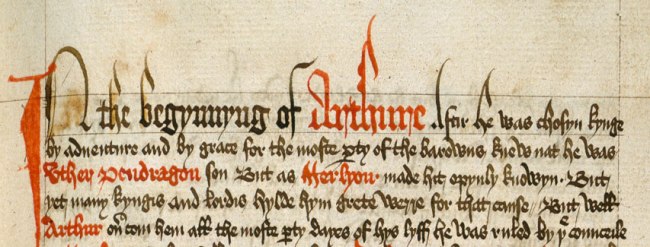 IN the begynnyng of Arthure Aftir he was chosyn kynge
by adventure and by grace for the moste pty of the barowns knew nat he was
Uther Pendragon son But as Merlyon made hit opynly knowyn. But
yet many kyngis and lordis hylde hym grete werre for that cause But well
Arthur ou com hem all the moste pty dayes of hys lyff he was ruled by ye counceile